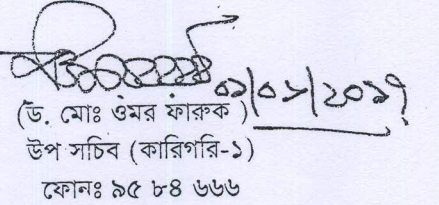 ০১/০১/২০১৭
(ড. মোঃ ওমর ফারুক )
উপ সচিব (কারিগরি-১)
ফোনঃ ৯৫ ৮৪ ৬৬৬